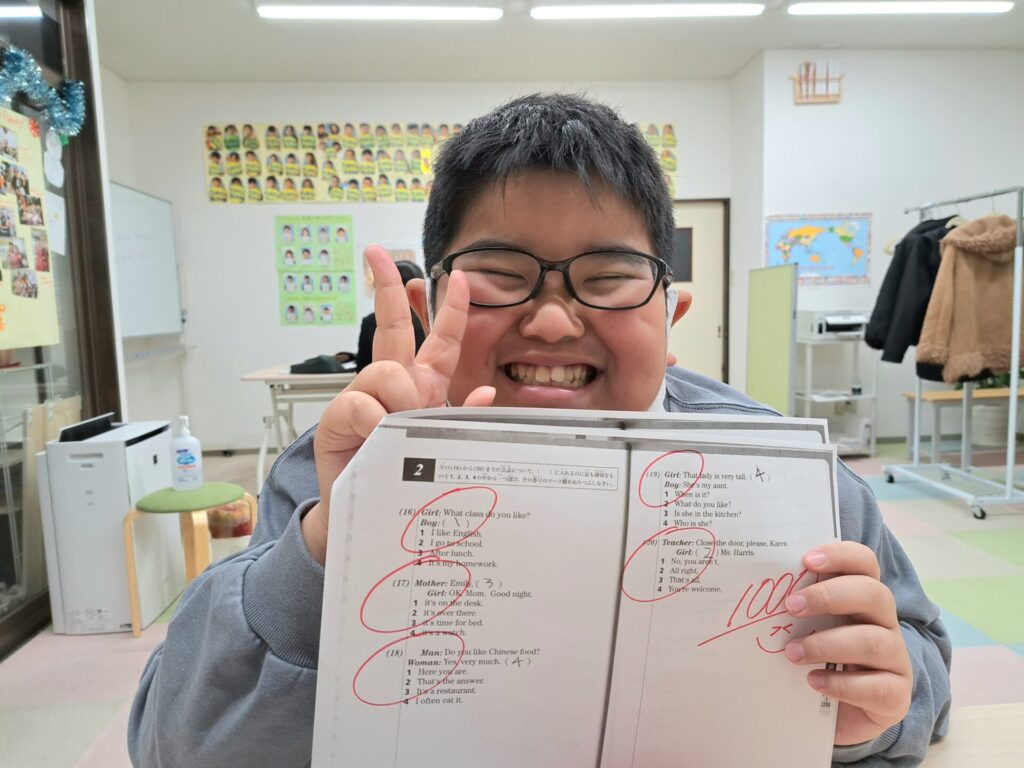 2
次の(16)から(20)までの会話について、( )に入れるのに最も適切なも
のを1, 2, 3, 4の中から一つ選び、その番号のマーク欄をぬりつぶしなさい。
(16) Girl: What class do you like?
Boy: ( \ )
1 I like English.
2 I go to school.
3 After lunch.
4 It's my homework.
(17) Mother: Emily, ( 3 )
Girl: OK, Mom. Good night.
1 it's on the desk.
2 it's over there.
3 it's time for bed.
4 it's a watch.
(18) Man: Do you like Chinese food?
Woman: Yes, very much. ( 4 )
1 Here you are.
2 That's the answer.
3 It's a restaurant.
4 I often eat it.
(19) Girl: That lady is very tall. ( 4 )
Boy: She's my aunt.
1 When is it?
2 What do you like?
3 Is she in the kitchen?
4 Who is she?
(20) Teacher: Close the door, please, Karen.
Girl: ( 2 ) Ms. Harris.
1 No, you aren't,
2 All right,
3 That's all,
4 You're welcome,
100%